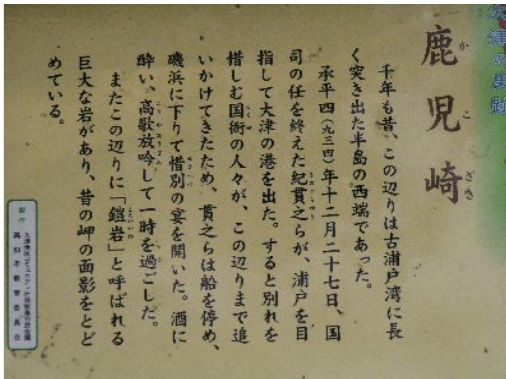 大津の史跡
鹿児崎
かこざき
千年も昔、この辺りは古浦戸湾に長
く突き出た半島の西端であった。
承平四(九三四)年十二月二十七日、国
司の任を終えた紀貫之らが、浦戸を目
指して大津の港を出た。すると別れを
惜しむ国衙の人々が、この辺りまで追
いかけてきたため、貫之らは船を停め、
磯浜に下りて惜別の宴を開いた。酒に
酔い、高歌放吟して一時を過ごした。
またこの辺りに「鎧岩」と呼ばれる
巨大な岩があり、昔の岬の面影をとど
めている。
高知市教育委員会